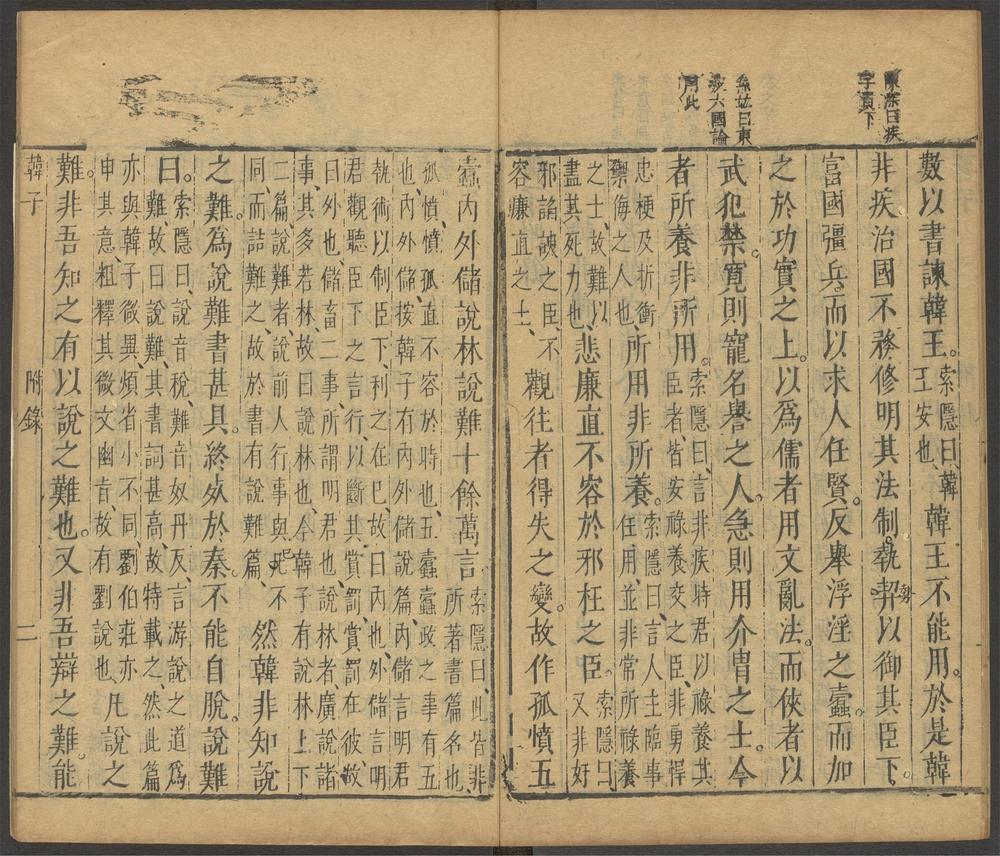 曰疾
字貫下
曰東
坡六國論
用此
數以書諫韓王。索隱曰、韓王安也、韓王不能用。於是韓
非疾治國不務修明其法制。執契以御其臣下。
勢
富國彊兵。而以求人任賢。反舉浮淫之蠹。而加
之於功實之上。以爲儒者用文亂法。而俠者以
武犯禁。寛則寵名譽之人。急則用介冑之士。今
者所養非所用。索隱曰、言非疾時君以祿養其
臣者、皆安祿養交之臣、非勇悍
忠梗及折衝
禦侮之人也、所用非所養。索隱曰、言人主臨事
任用、並非常所祿養
之士、故難以
盡其死力也、悲廉直不容於邪枉之臣。索隱曰
又非好
邪諂諛之臣、不
容廉直之士、觀往者得失之變。故作孤憤五
蠹內外儲說林說難十餘萬言 索隱曰、此皆非
所著書篇名也
孤憤、孤直不容於時也、五蠹、蠹政之事有五
也、內外儲、按韓子有內外儲說篇、內儲言明君
執術以制臣下、利之在已、故曰內也、外儲言明
君觀聽臣下之言行、以斷其賞罰、賞罰在彼、故
曰外也、儲畜二事、所謂明君也、說林者、廣說諸
事、其多若林、故曰說林也、今韓子有說林上下
二篇、說難者、說前人行事與己不
同、而詰難之、故於書有說難篇、然韓非知說
之難。爲說難書甚具。終死於秦。不能自脫。說難
曰。索隱曰、說音稅、難音奴丹反、言游說之道爲
難、故曰說難、其書詞甚高、故特載之、然此篇
亦與韓子微異、煩省小不同、劉伯莊亦
申其意、粗釋其微文幽旨、故有劉說也、凡說之
難。非吾知之有以說之難也。又非吾辯之難。能
韓子 附錄 二